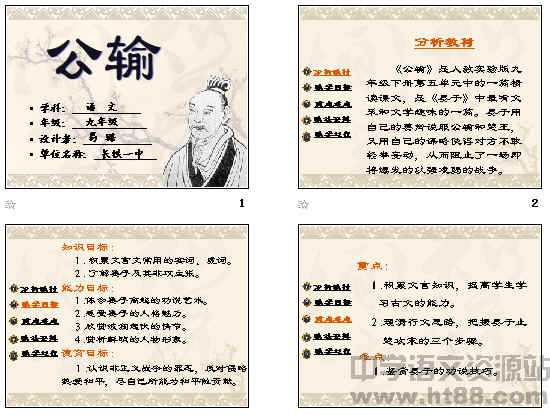 公输
学科： 语 文
年级： 九年级
设计者： 易 璐
单位名称： 长铁一中
1
分析教材
分析教材
教学目标
重点难点
教法学法
教学过程
《公输》是人教实验版九
年级下册第五单元中的一篇精
读课文，是《墨子》中最有文
采和文学趣味的一篇。墨子用
自己的善辩说服公输和楚王，
又用自己的谋略使得对方不敢
轻举妄动，从而阻止了一场即
将爆发的以强凌弱的战争。
2
知识目标：
1.积累文言文常用的实词、虚词。
2.了解墨子及其非攻主张。
能力目标：
1.体会墨子高超的劝说艺术。
2.感受墨子的人格魅力。
3.欣赏波澜起伏的情节。
4.赏析鲜明的人物形象。
德育目标：
1.认识非正义战争的罪恶，反对侵略
热爱和平，尽自己所能为和平做贡献。
分析教材
教学目标
重点难点
教学过程
重点：
1.积累文言知识，提高学生学
习古文的能力。
2.理清行文思路，把握墨子止
楚攻宋的三个步骤。
难点
1.鉴赏墨子的劝说技巧。
分析教材
教学目标
重点难点
教学过程
中学语文资源站
www.ht88.com